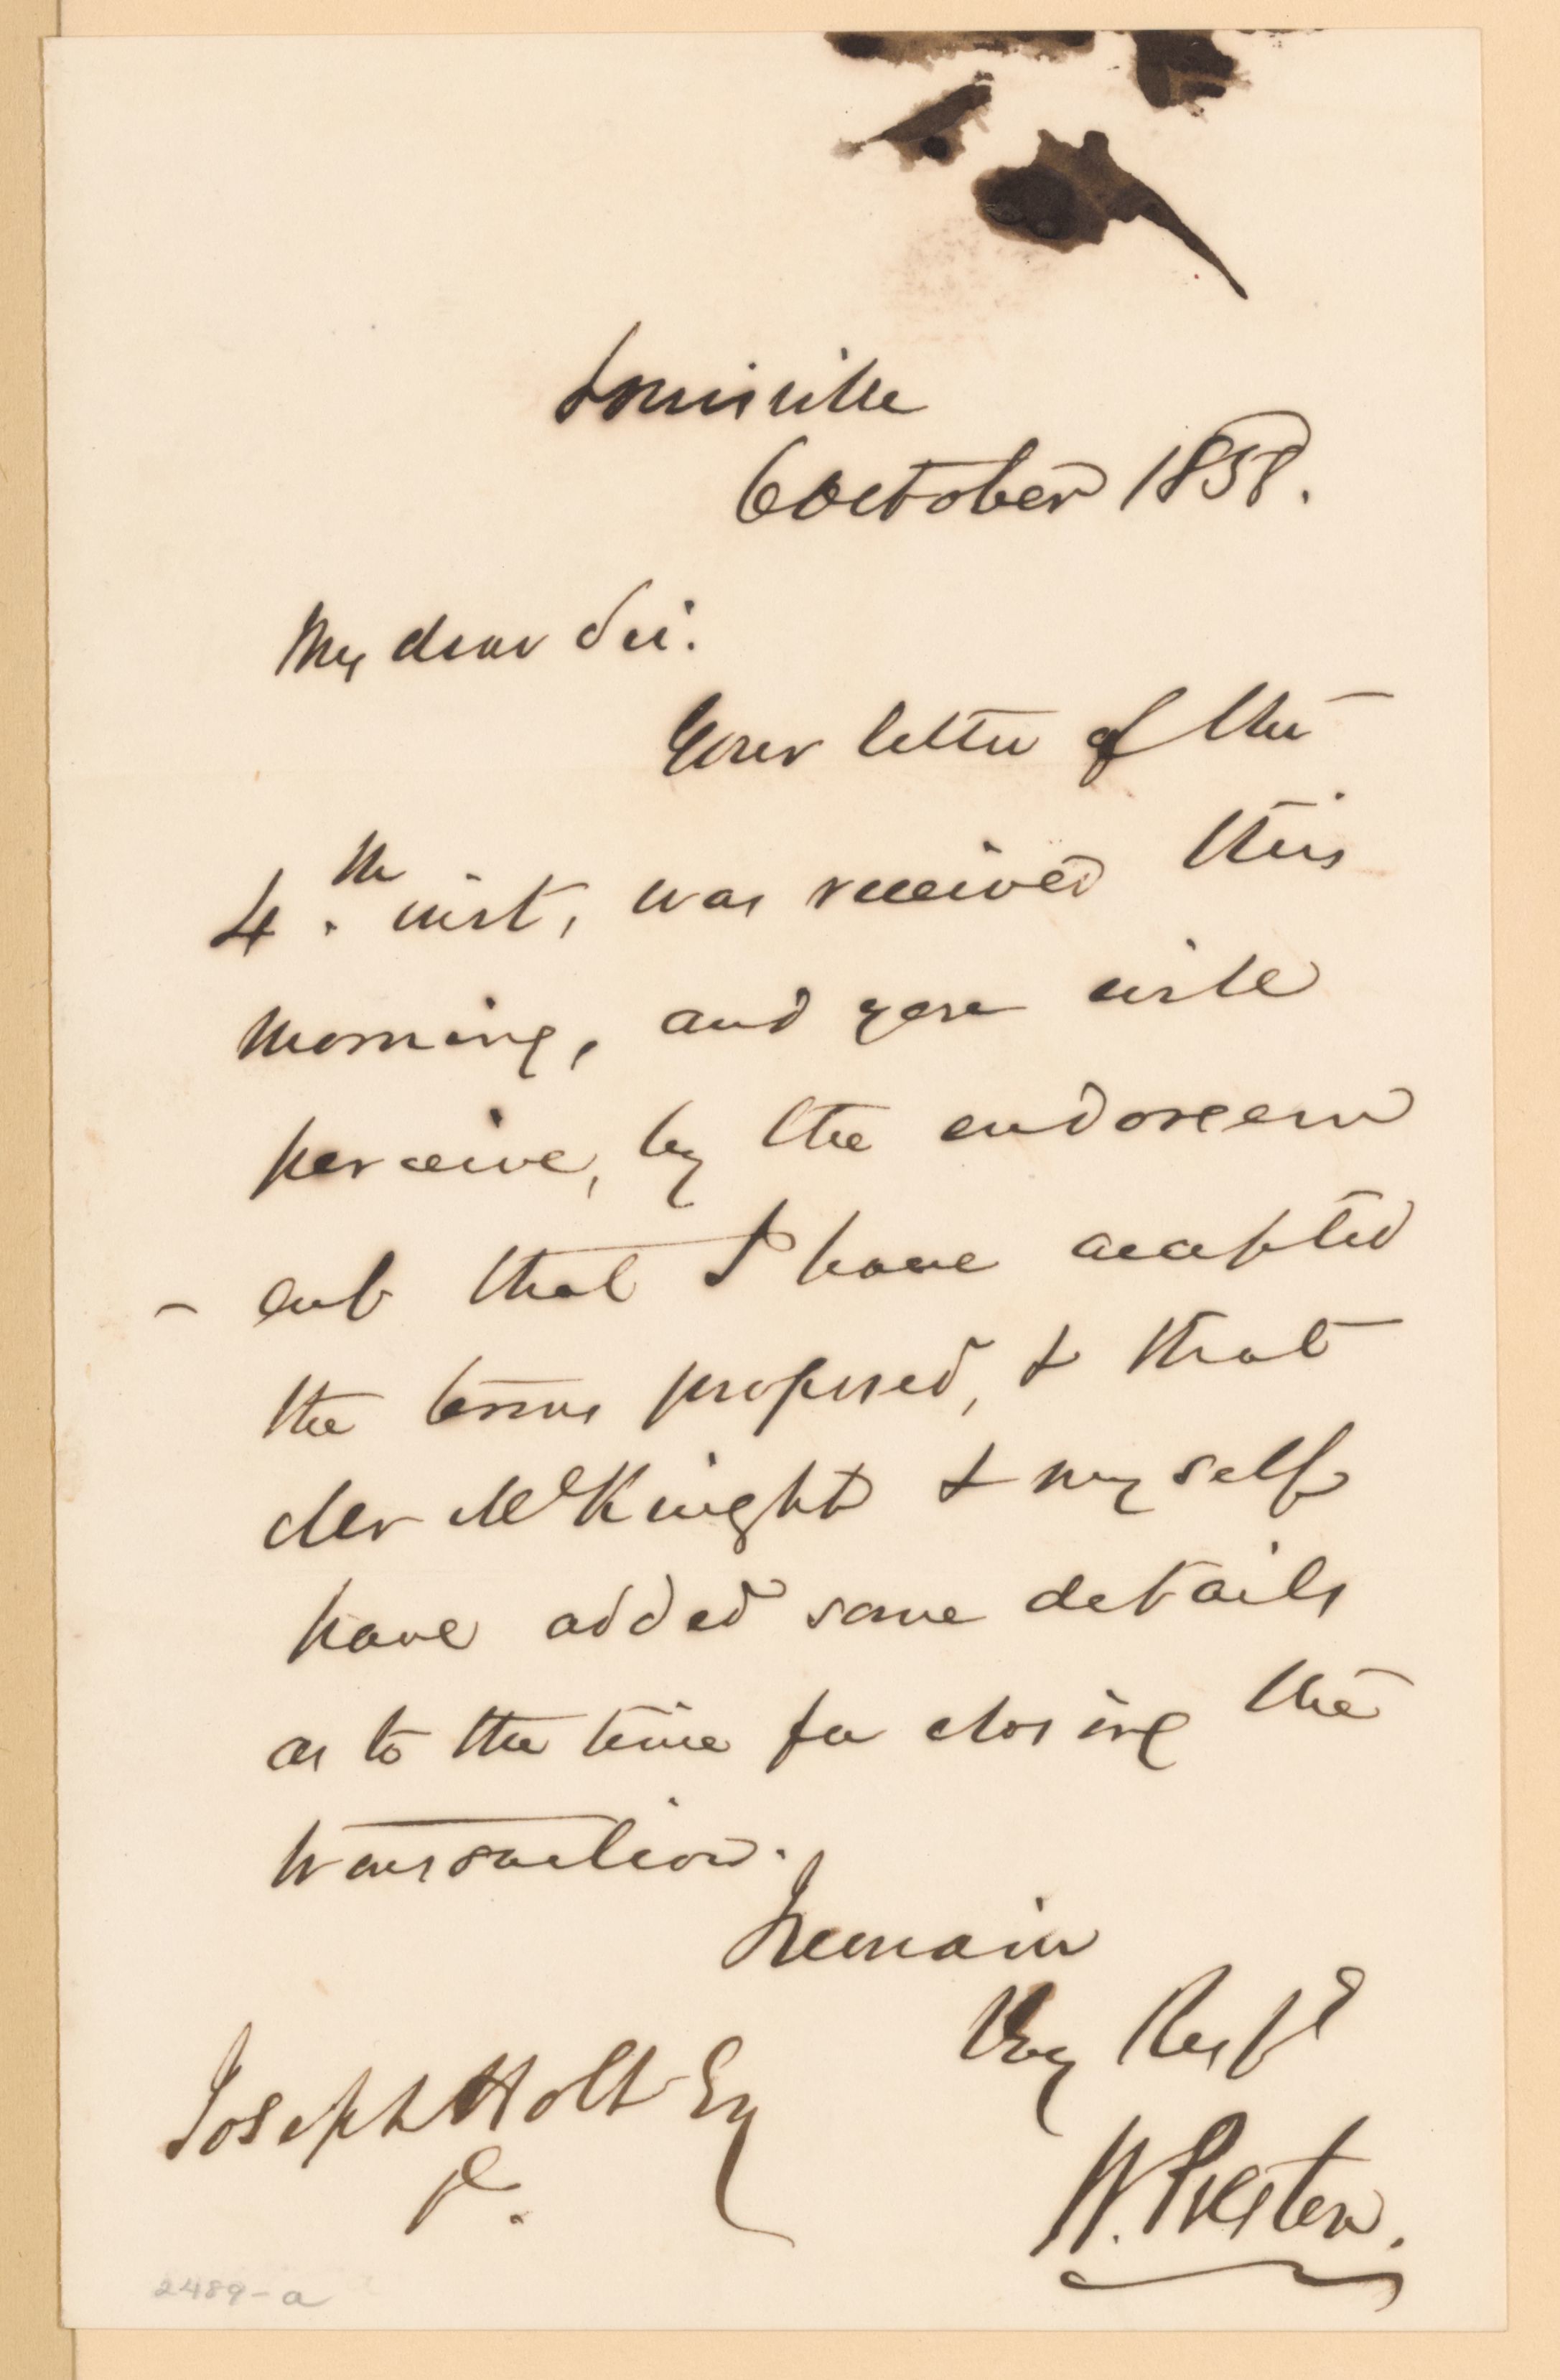 Louisville
6 October 1858.
My dear Sir.
Your letter of the
4th. inst, was received this
morning, and you will
perceive, by the endorsem
- ent that I have accepted
the terms proposed, & that
Mr McKnight & myself
have added some details
as to the time for closing the
transaction.
I remain
Very Respy
W. Preston.
Joseph Holt Esq
2489-a